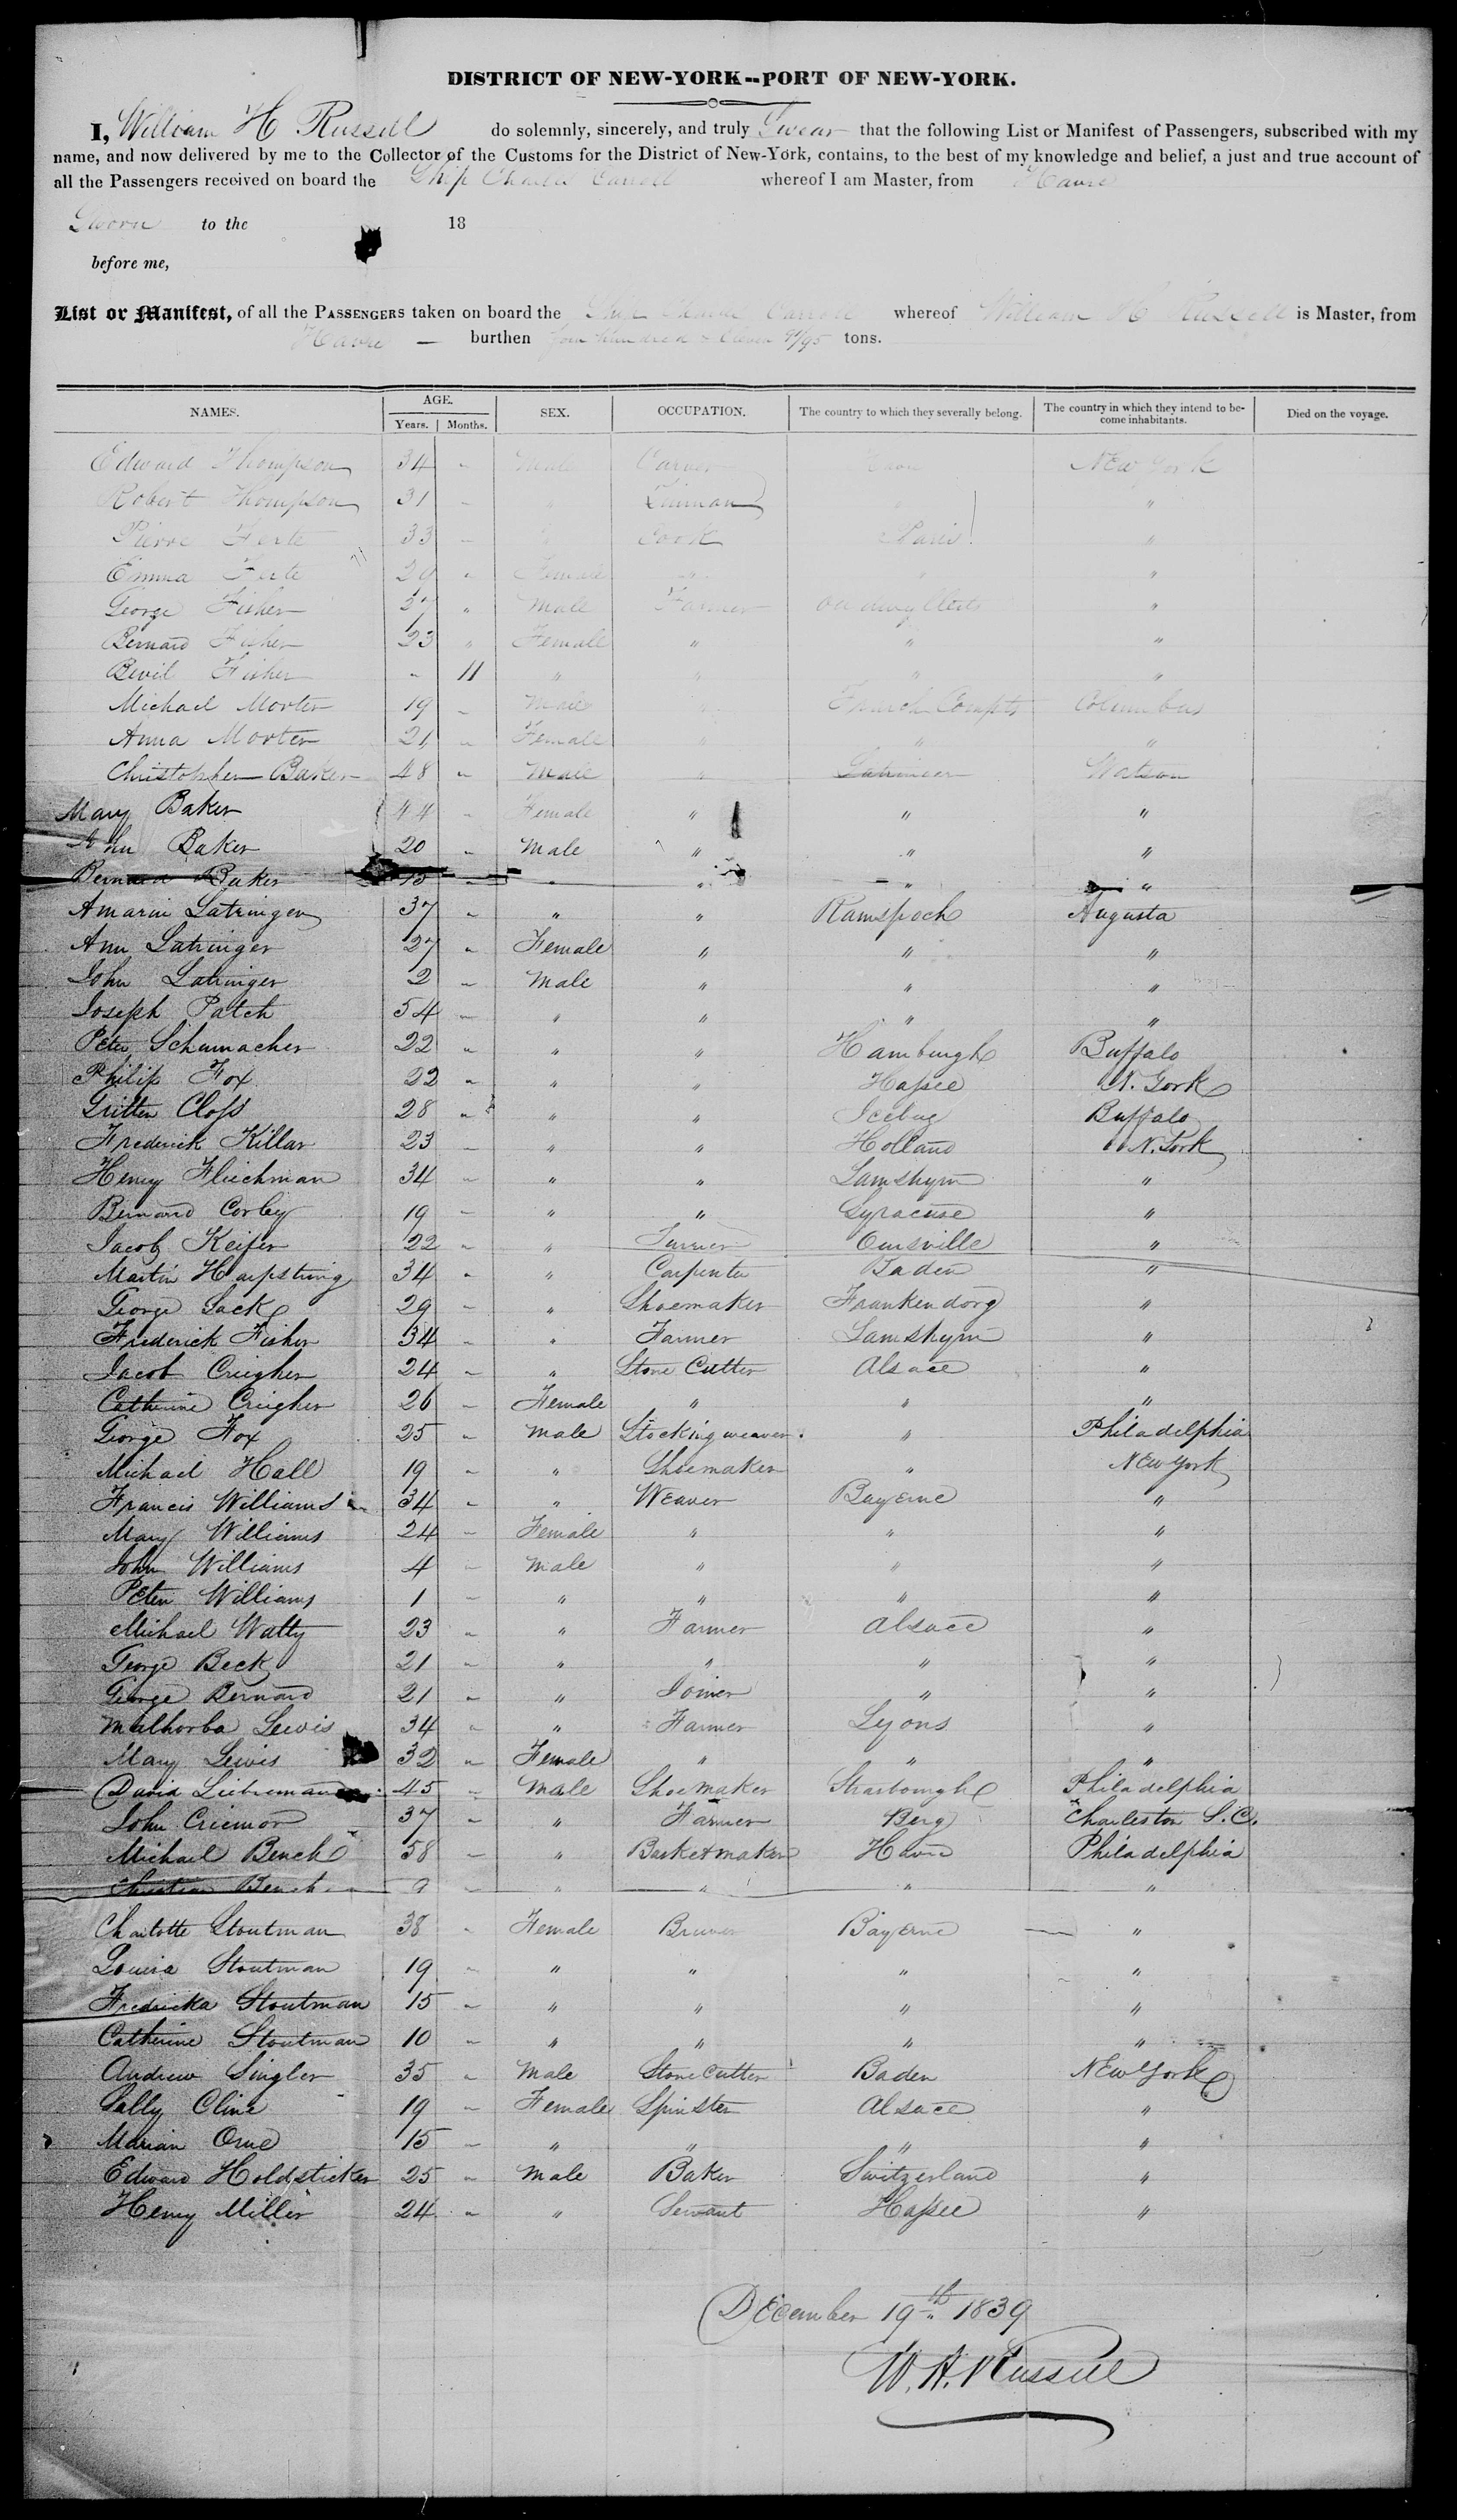 DISTRICT OF NEW-YORK--PORT OF NEW-YORK.
I, William H Russell do solemnly, sincerely, and truly Swear that the following List or Manifest of Passengers, subscribed with my
name, and now delivered by me to the Collector of the Customs for the District of New-York, contains, to the best of my knowledge and belief, a just and true account of
all the Passengers received on board the Ship Charles Carroll whereof I am Master, from Havre
Sworn to the 18
before me,
List or Manifest, of all the PASSENGERS taken on board the Ship Charles Carroll whereof William H Russell is Master, from
Havre — burthen four hundred & eleven /95 tons.
NAMES. AGE. SEX. OCCUPATION. The country to which they severally belong. The country in which they intend to be-
come inhabitants. Died on the voyage.
Years. Months.
Edward Thompson 34 - Male Carver New York
Robert Thompson 31 - " "
Pierre Ferte 33 - " Cook Paris "
Emma Ferte 29 " Female " " "
George Fisher 37 " Male Farmer "
Bernard Fisher 23 " Female " " "
Bevil Fisher - 11 " " " "
Michael Morter 19 - Male " French Columbus
Anna Morter 21 " Female " " "
Christopher Baker 48 " Male " Watson
Mary Baker 44 - Female " " "
John Baker 20 " Male " " "
Bernard Baker 15 - " " " "
Amarin Latringer 37 - " " Ramspoch Augusta
Ann Latringer 27 " Female " " "
John Latringer 2 - Male " " "
Joseph Patch 54 - " " " "
Peter Schumacher 22 " " " Hamburgh Buffalo
Philip Fox 22 " " " Hassee N. York
Gritten Closs 28 " " " Buffalo
Frederick Killar 23 - " " Holland N. York
Henry Fliechman 34 - " " Lamshym "
Bernard Corley 19 - " " Syracuse "
Jacob Keifer 22 " " Oursville "
Martin Harpstring 34 " " Carpenter Baden "
George Sack 29 - " Shoemaker Frankendorg "
Frederick Fisher 34 - " Farmer Lamshym "
Jacob Creigher 24 - " Stone Cutter Alsace "
Catherine Creigher 26 - Female " " "
George Fox 25 " Male Stocking weaver " Philadelphia
Michael Hall 19 - " Shoemaker " New York
Francis Williams 34 - " Weaver Bayerne "
Mary Williams 24 - Female " " "
John Williams 4 - Male " " "
Peter Williams 1 - " " " "
Michael Watty 23 " " Farmer Alsace "
George Beck 21 " " " " "
George Bernard 21 " " Joiner " "
Malhorba Lewis 34 " " Farmer Lyons "
Mary Lewis 32 " Female " " "
David Liebreman 45 - Male Shoemaker Strasbourgh Philadelphia
John Criemor 37 - " Farmer Berg Charleston S.C.
Michael Bench 58 - " Basketmaker Havre Philadelphia
Christian Bench 9 - " " " "
Charlotte Stoutman 38 " Female Brewer Bayerne "
Louisa Stoutman 19 - " " " "
Fredricka Stoutman 15 " " " " "
Catherine Stoutman 10 - " " " "
Andrew Singler 35 " Male Stone Cutter Baden New York
Sally Cline 19 - Female Spinster Alsace "
Marian Orne 15 - " " " "
Edward Holdsticker 25 " Male Baker Switzerland "
Henry Miller 24 " " Servant Hassee "
December 19th 1839
W. H. Russell